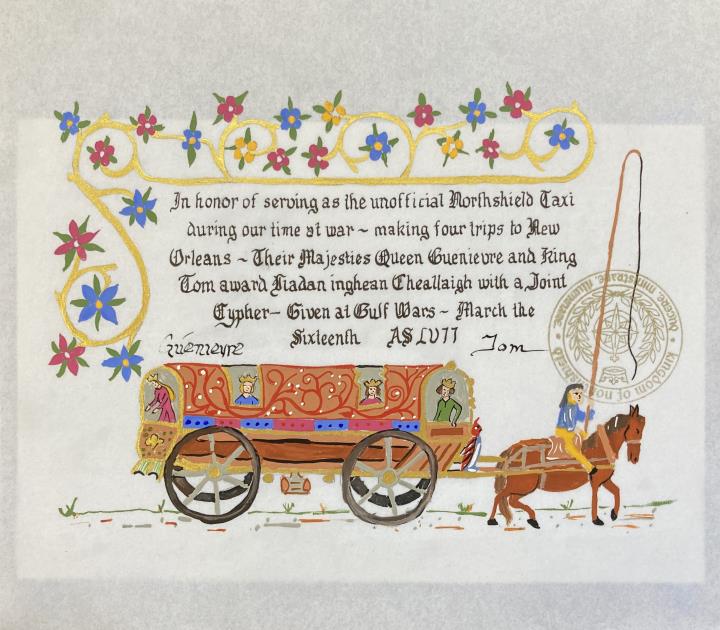 In honor of serving as the unofficial Northshield Taxi
during our time at war ~ making four trips to New
Orleans ~ Their Majesties Queen Guenievre and King
Tom award Fiadan inghean Cheallaigh with a Joint
Cypher~ Given at Gulf Wars ~ March the
Sixteenth AS LVII
Guenievre Tom
kingdom of northshield · docere ministrare illuminare ·